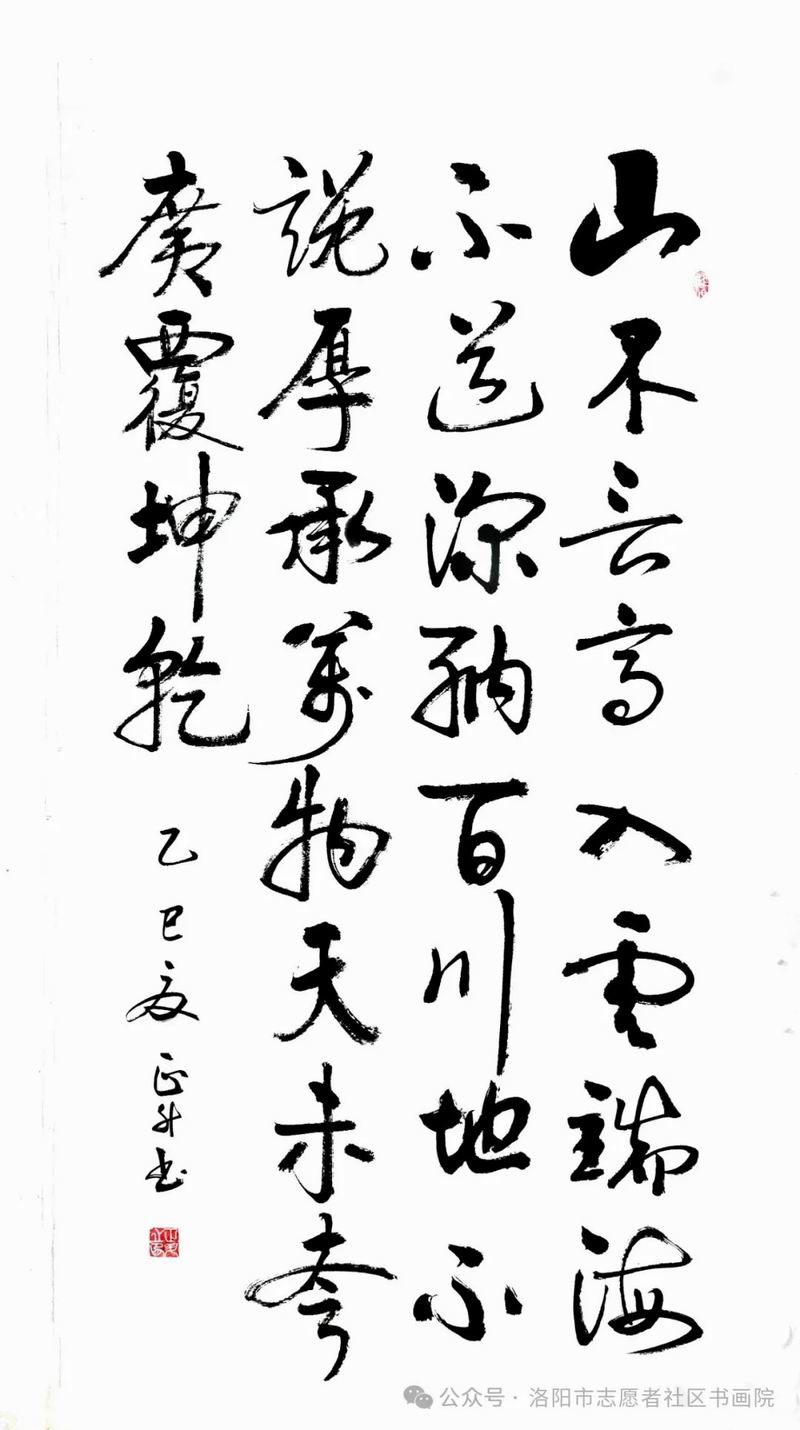 山不言高入雲端海
不道深納百川地不
說厚承萬物天未夸
廣覆坤乾
乙巳夏正升书
公众号·洛阳市志愿者社区书画院